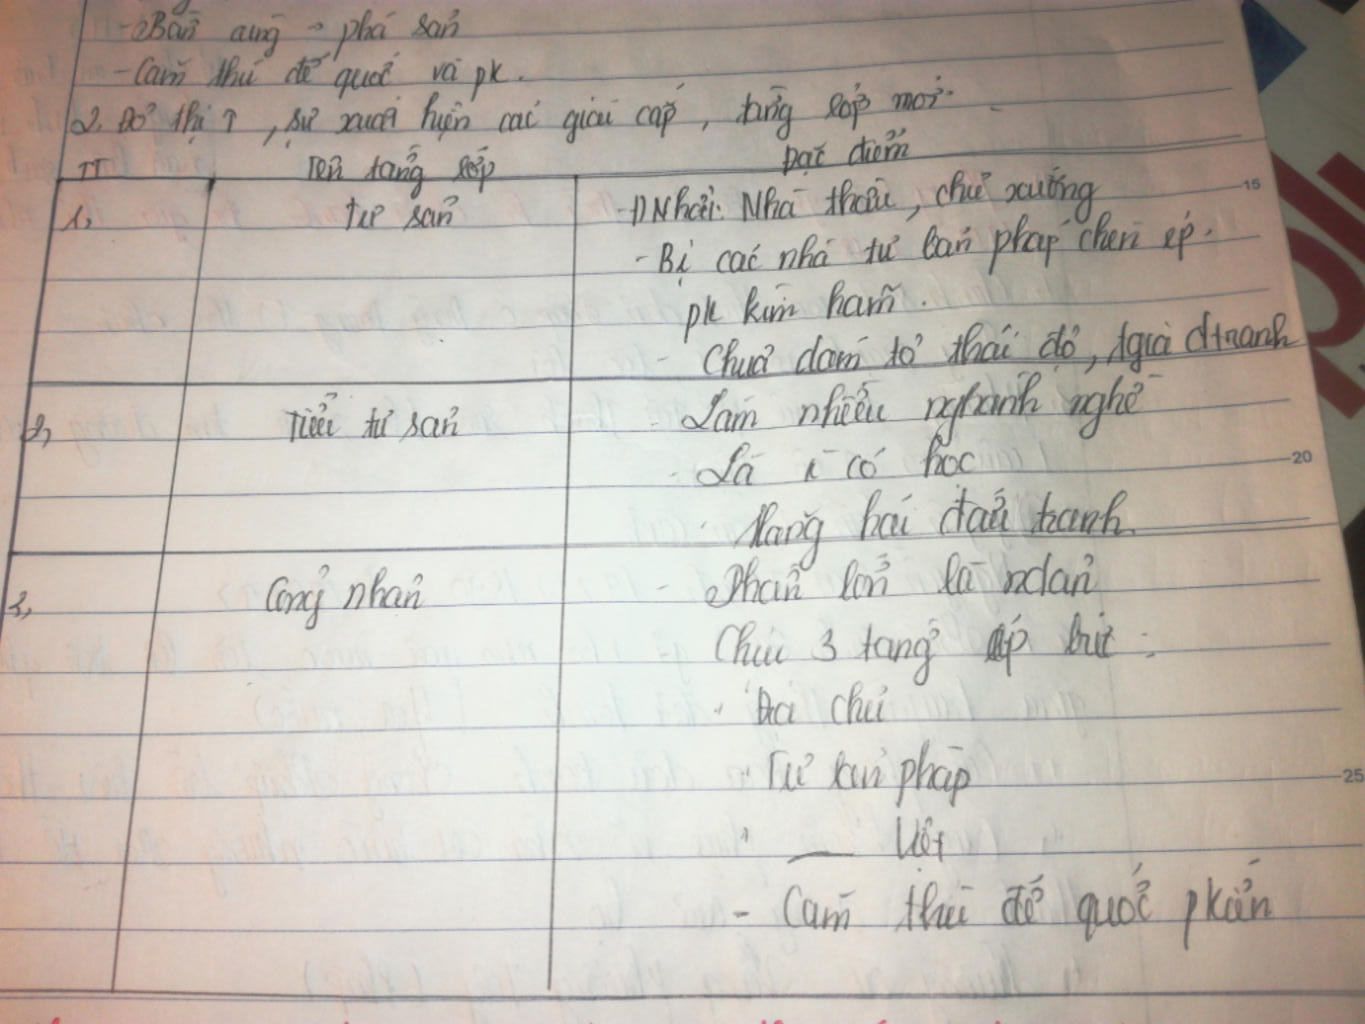 - Bần cùng → phá sản
- Căm thù đế quốc và pk.
2. Đô thị ↑, sự xuất hiện các giai cấp, tầng lớp mới.
TT Tên tầng lớp Đặc điểm
1, Tư sản - Nhà thầu, chủ xưởng 15
- Bị các nhà tư bản pháp chèn ép.
pk kìm hãm.
- Chưa dám tỏ thái độ, tgia đtranh
2, Tiểu tư sản - Làm nhiều nghành nghề
- Là có học 20
Hăng hái đấu tranh.
3, Công nhân - Phần lớn là ndân
Chịu 3 tầng áp bức:
Địa chủ
Tư bản pháp 25
" — Việt
- Căm thù đế quốc pkiến